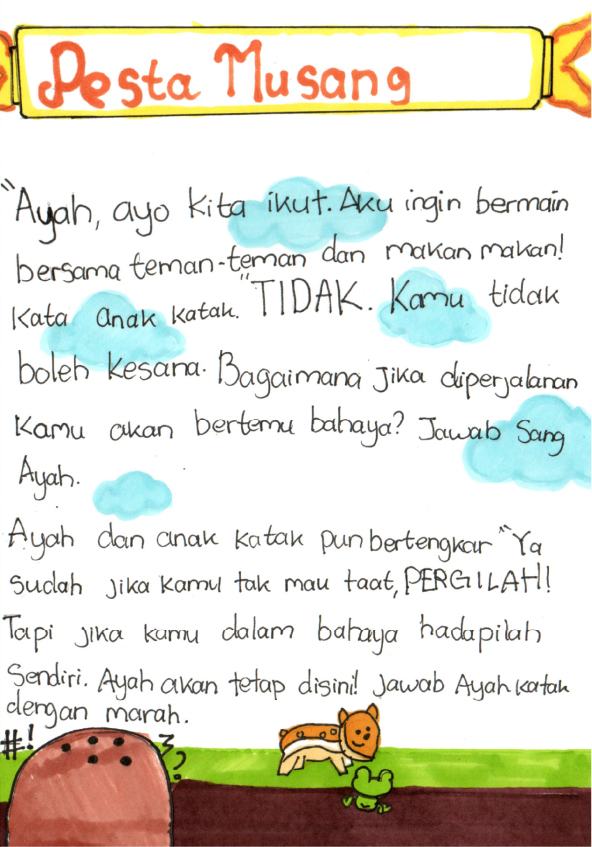 Pesta Musang
"Ayah, ayo kita ikut. Aku ingin bermain
bersama teman-teman dan makan makan!
Kata anak katak. "TIDAK. Kamu tidak
boleh kesana. Bagaimana jika diperjalanan
kamu akan bertemu bahaya? Jawab Sang
Ayah.
Ayah dan anak katak pun bertengkar "Ya
sudah jika kamu tak mau taat, PERGILAH!
Tapi jika kamu dalam bahaya hadapilah
sendiri. Ayah akan tetap disini! Jawab Ayah katak
dengan marah.
#! ?